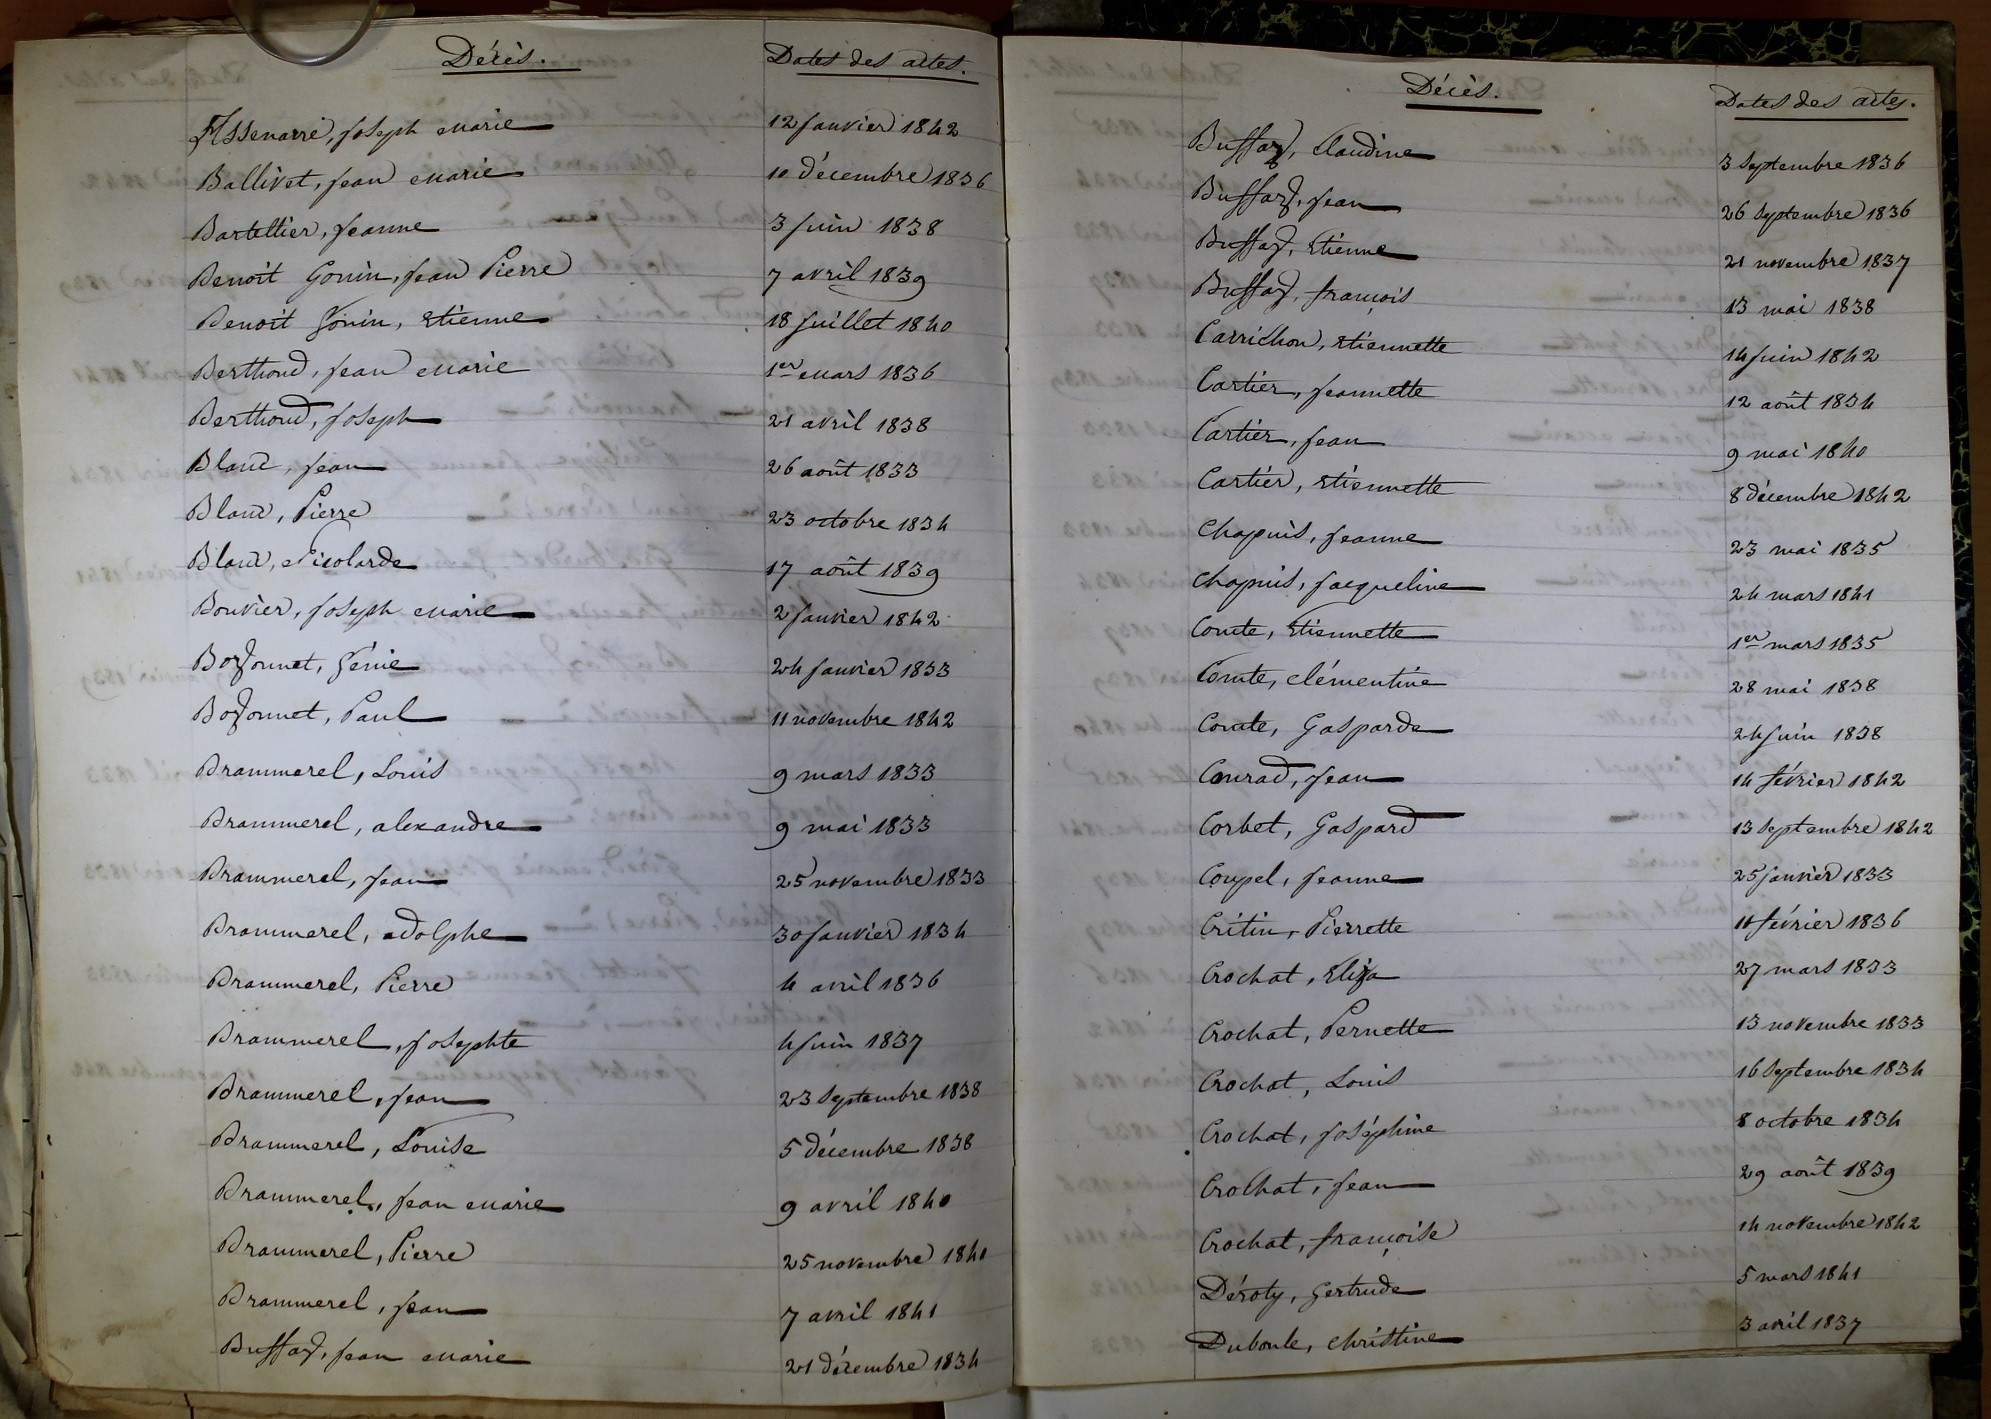 Décès. Dates des actes.
Assenarre, Joseph Marie 12 Janvier 1842
Ballivet, Jean Marie 10 décembre 1836
Bartellier, Jeanne 3 Juin 1838
Benoit Gonin, Jean Pierre 7 avril 1839
Benoit Gonin, Etienne 18 Juillet 1840
Berthoud, Jean Marie 1er Mars 1836
Berthoud, Joseph 21 avril 1838
Bland, Jean 26 août 1833
Bland, Pierre 23 octobre 1834
Bland, Nicolarde 17 août 1839
Bouvier, Joseph Marie 2 Janvier 1842
Bozonnet, Génie 24 Janvier 1833
Bozonnet, Paul 11 novembre 1842
Brammerel, Louis 9 mars 1833
Brammerel, alexandre 9 mai 1833
Brammerel, Jean 25 novembre 1833
Brammerel, adolphe 30 Janvier 1834
Brammerel, Pierre 4 avril 1836
Brammerel, Josephte 4 Juin 1837
Brammerel, Jean 23 Septembre 1838
Brammerel, Louise 5 décembre 1838
Brammerel, Jean Marie 9 avril 1840
Brammerel, Pierre 25 novembre 1840
Brammerel, Jean 7 avril 1841
Buffaz, Jean Marie 21 décembre 1834
Décès. Dates des actes.
Buffaz, Claudine 3 Septembre 1836
Buffaz, Jean 26 Septembre 1836
Buffaz, Etienne 21 novembre 1837
Buffaz, françois 13 mai 1838
Carrichon, Etiennette 14 Juin 1842
Cartier, Jeannette 12 août 1834
Cartier, Jean 9 mai 1840
Cartier, Etiennette 8 décembre 1842
Chapuis, Jeanne 23 mai 1835
Chapuis, Jacqueline 24 mars 1841
Comte, Etiennette 1er mars 1835
Comte, Clémentine 28 mai 1838
Comte, Gasparde 24 Juin 1838
Conrad, Jean 14 février 1842
Corbet, Gaspard 13 Septembre 1842
Coupel, Jeanne 25 Janvier 1833
Critin, Pierrette 11 février 1836
Crochat, Eliza 27 mars 1833
Crochat, Pernette 13 novembre 1833
Crochat, Louis 16 Septembre 1834
Crochat, Joséphine 8 octobre 1834
Crochat, Jean 29 août 1839
Crochat, françoise 14 novembre 1842
Déroty, Gertrude 5 mars 1841
Duboule, Christine 3 avril 1837